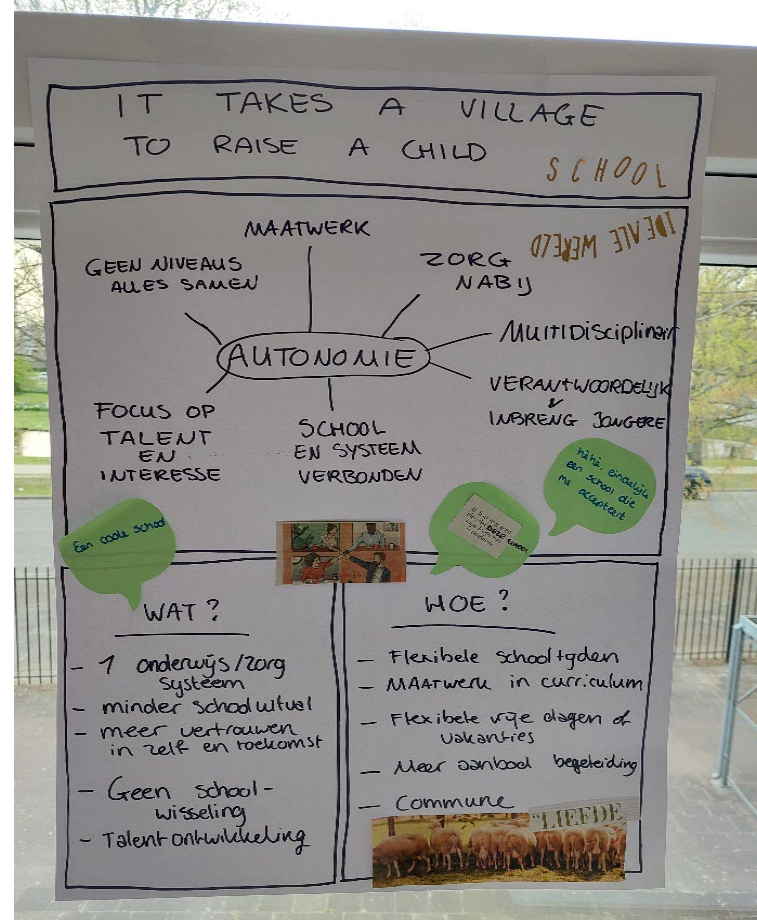 IT TAKES A VILLAGE
TO RAISE A CHILD
SCHOOL
IDEALE WERELD
MAATWERK
GEEN NIVEAUS
ALLES SAMEN
ZORG
NABIJ
MULTIDisciplinair
AUTONOMIE
VERANTWOORDELIJK
&
INBRENG JONGERE
FOCUS OP
TALENT
EN
INTERESSE
SCHOOL
EN SYSTEEM
VERBONDEN
hèhè, eindelijk
een school die
me accepteert
Een coole school
DEZE SCHOOL
WAT?
- 1 onderwijs/zorg
systeem
- minder schooluitval
- meer vertrouwen
in zelf en toekomst
- Geen school-
wisseling
- Talentontwikkeling
HOE?
- Flexibele schooltijden
- MAATwerk in curriculum
- Flexibele vrije dagen of
vakanties
- Meer aanbod begeleiding
- Commune
"LIEFDE